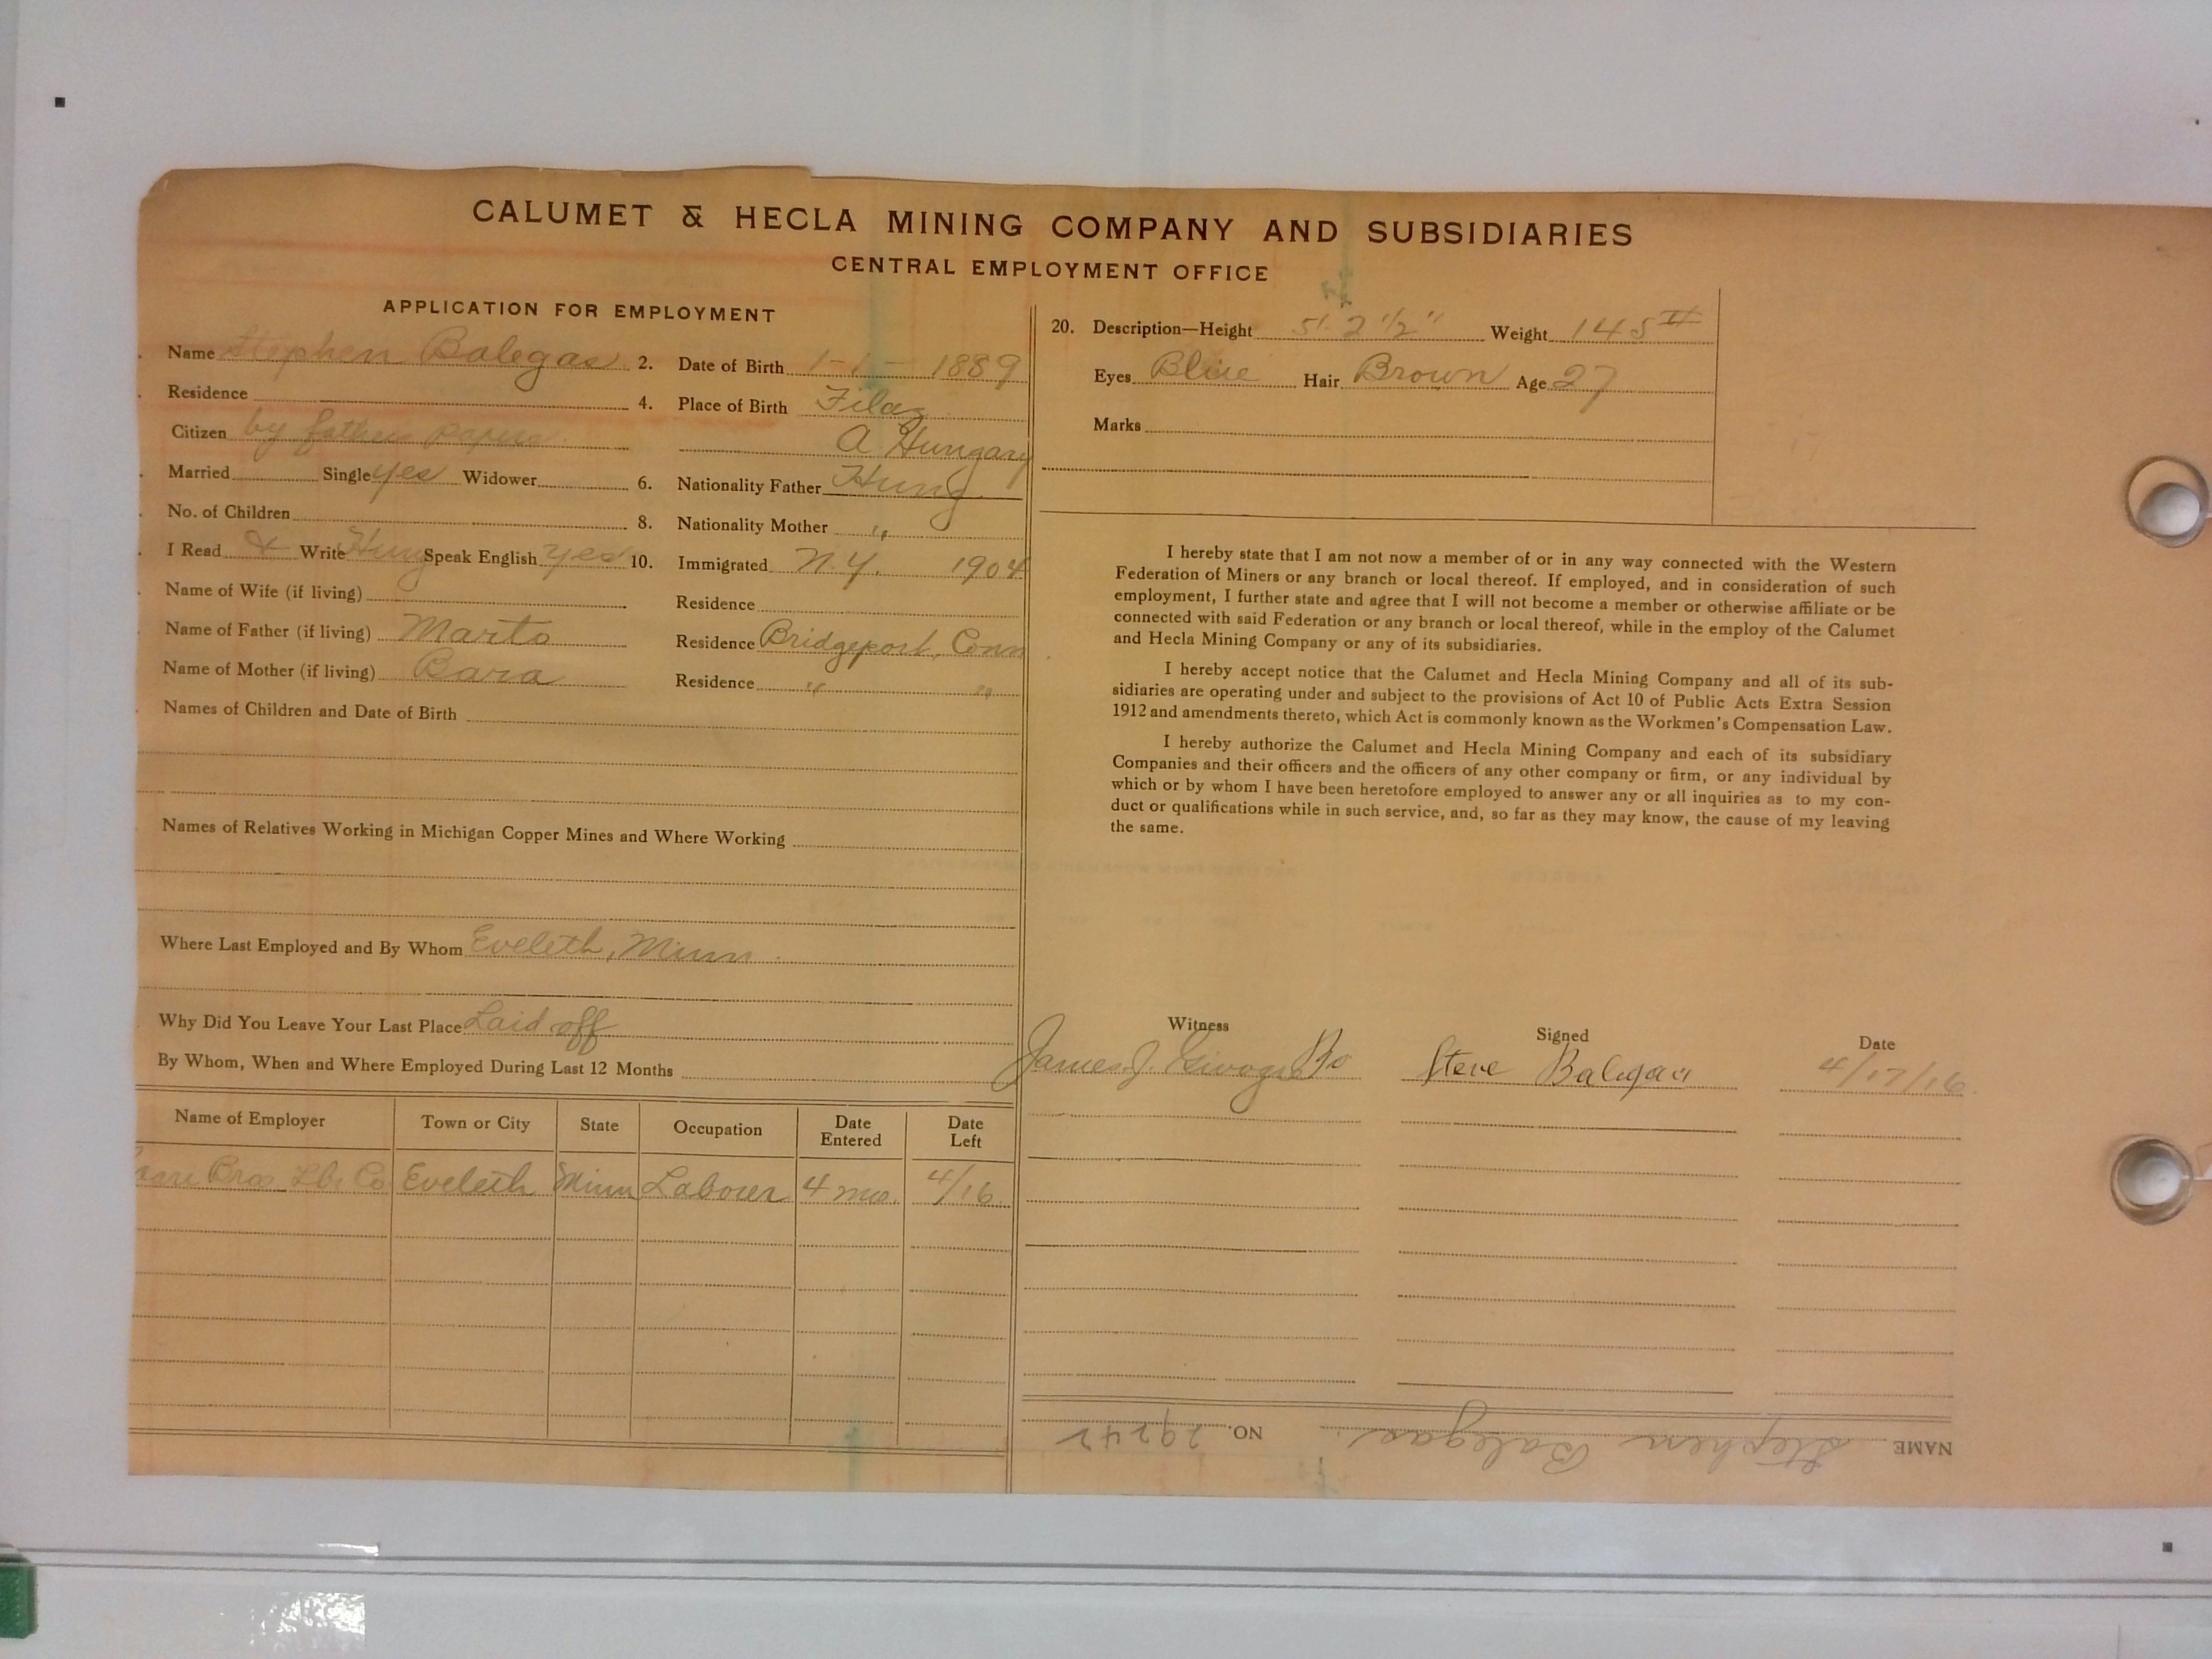 CALUMET & HECLA MINING COMPANY AND SUBSIDIARIES
CENTRAL EMPLOYMENT OFFICE
APPLICATION FOR EMPLOYMENT
Name Stephen Balegas 2. Date of Birth 1-1- 1889
Residence 4. Place of Birth Filaz
Citizen by fathers papers A Hungary
Married Single yes Widower 6. Nationality Father Hung
No. of Children 8. Nationality Mother "
I Read & Write Hung Speak English yes 10. Immigrated N.Y. 1904
Name of Wife (if living) Residence
Name of Father (if living) Marto Residence Bridgeport, Conn
Name of Mother (if living) Bara Residence " "
Names of Children and Date of Birth
Names of Relatives Working in Michigan Copper Mines and Where Working
Where Last Employed and By Whom Eveleth, Minn.
Why Did You Leave Your Last Place Laid off
By Whom, When and Where Employed During Last 12 Months
Name of Employer Town or City State Occupation Date Entered Date Left
Bros. Lbr Co Eveleth Minn Laborer 4 mos. 4/16
20. Description—Height 5' 2 1/2" Weight 145 #
Eyes Blue Hair Brown Age 27
Marks
I hereby state that I am not now a member of or in any way connected with the Western
Federation of Miners or any branch or local thereof. If employed, and in consideration of such
employment, I further state and agree that I will not become a member or otherwise affiliate or be
connected with said Federation or any branch or local thereof, while in the employ of the Calumet
and Hecla Mining Company or any of its subsidiaries.
I hereby accept notice that the Calumet and Hecla Mining Company and all of its sub-
sidiaries are operating under and subject to the provisions of Act 10 of Public Acts Extra Session
1912 and amendments thereto, which Act is commonly known as the Workmen's Compensation Law.
I hereby authorize the Calumet and Hecla Mining Company and each of its subsidiary
Companies and their officers and the officers of any other company or firm, or any individual by
which or by whom I have been heretofore employed to answer any or all inquiries as to my con-
duct or qualifications while in such service, and, so far as they may know, the cause of my leaving
the same.
Witness Signed Date
James J. Steve Balegas 4/17/16
NAME Stephen Balegas NO. 29242